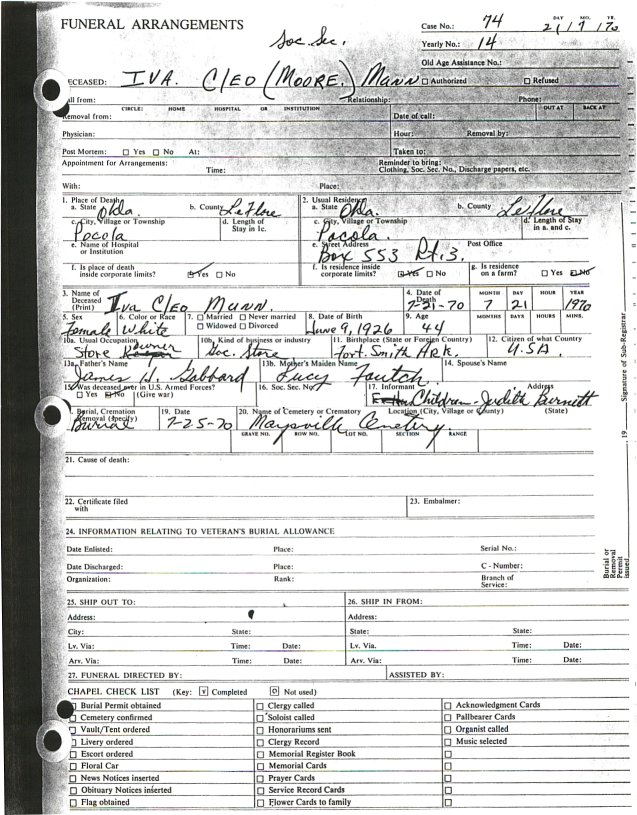 FUNERAL ARRANGEMENTS
Soc. Sec.
Case No.: 74
DAY MO. YR.
21 / 7 / 70
Yearly No.: 14
Old Age Assistance No.:
DECEASED: IVA. Cleo (MOORE.) Munn
☐ Authorized ☐ Refused
Call from: Relationship: Phone:
CIRCLE: HOME HOSPITAL OR INSTITUTION OUT AT BACK AT
Removal from: Date of call:
Physician: Hour: Removal by:
Post Mortem: ☐ Yes ☐ No At: Taken to:
Appointment for Arrangements: Time: Reminder to bring:
Clothing, Soc. Sec. No., Discharge papers, etc.
With: Place:
1. Place of Death
a. State Okla. b. County LeFlore
c. City, Village or Township Pocola
d. Length of Stay in 1c.
e. Name of Hospital or Institution
f. Is place of death inside corporate limits? ☑ Yes ☐ No
2. Usual Residence
a. State Okla. b. County LeFlore
c. City, Village or Township Pocola.
d. Length of Stay in a. and c.
e. Street Address Post Office
Box 553 Rt. 3.
f. Is residence inside corporate limits? ☑ Yes ☐ No
g. Is residence on a farm? ☐ Yes ☑ No
3. Name of Deceased (Print) Iva Cleo Munn.
4. Date of Death 7-21-70
MONTH DAY HOUR YEAR
7 21 1970
5. Sex Female
6. Color or Race White
7. ☐ Married ☐ Never married
☐ Widowed ☐ Divorced
8. Date of Birth June 9, 1926
9. Age 44
MONTHS DAYS HOURS MINS.
10a. Usual Occupation Store owner
10b. Kind of business or industry Groc. Store
11. Birthplace (State or Foreign Country) Fort. Smith ARK.
12. Citizen of what Country U.S.A.
13a. Father's Name James H. Gabbard
13b. Mother's Maiden Name Lucy Foutch
14. Spouse's Name
15. Was deceased ever in U.S. Armed Forces?
☐ Yes ☑ No (Give war)
16. Soc. Sec. No.
17. Informant Address
Children - Judith Burnett
18. Burial, Cremation Removal (Specify) Burial
19. Date 7-25-70
20. Name of Cemetery or Crematory Location (City, Village or County) (State)
Maysville Cemetery.
GRAVE NO. ROW NO. LOT NO. SECTION RANGE
21. Cause of death:
22. Certificate filed with
23. Embalmer:
24. INFORMATION RELATING TO VETERAN'S BURIAL ALLOWANCE
Date Enlisted: Place: Serial No.:
Date Discharged: Place: C - Number:
Organization: Rank: Branch of Service:
25. SHIP OUT TO: 26. SHIP IN FROM:
Address: Address:
City: State: State: State:
Lv. Via: Time: Date: Lv. Via. Time: Date:
Arv. Via: Time: Date: Arv. Via: Time: Date:
27. FUNERAL DIRECTED BY: ASSISTED BY:
CHAPEL CHECK LIST (Key: ☑ Completed ☐ Not used)
☐ Burial Permit obtained ☐ Clergy called ☐ Acknowledgment Cards
☐ Cemetery confirmed ☐ Soloist called ☐ Pallbearer Cards
☐ Vault/Tent ordered ☐ Honorariums sent ☐ Organist called
☐ Livery ordered ☐ Clergy Record ☐ Music selected
☐ Escort ordered ☐ Memorial Register Book ☐
☐ Floral Car ☐ Memorial Cards ☐
☐ News Notices inserted ☐ Prayer Cards ☐
☐ Obituary Notices inserted ☐ Service Record Cards ☐
☐ Flag obtained ☐ Flower Cards to family ☐
Burial or Removal Permit issued 19 Signature of Sub-Registrar